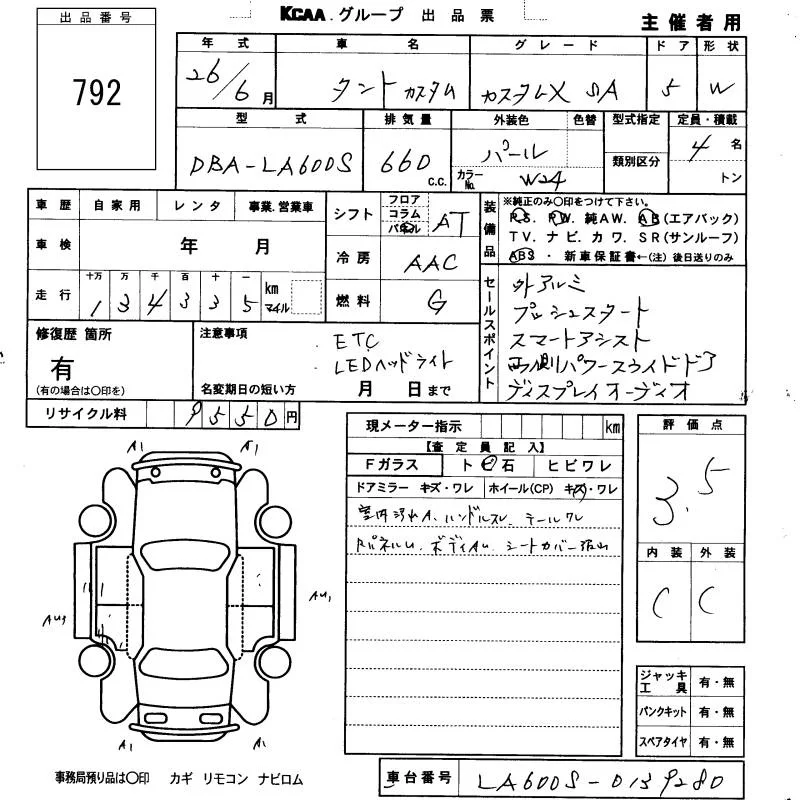 KCAA.グループ 出品票
主催者用
出品番号
792
年式 車名 グレード ドア 形状
26/6月 タントカスタム カスタムX SA 5 W
型式 排気量 外装色 色替 型式指定 定員・積載
DBA-LA600S 660 C.C. パール 類別区分 4名
カラーNo. W24 トン
車歴 自家用 レンタ 事業.営業車
車検 年 月
走行 十万 万 千 百 十 一 km マイル
1 3 4 3 3 5
シフト フロア コラム パネル AT
冷房 AAC
燃料 G
装備品 ※純正のみ○印をつけて下さい。
P.S. P.W. 純AW. AB(エアバック)
TV. ナビ. カワ. SR(サンルーフ)
ABS ・ 新車保証書←(注)後日送りのみ
セールスポイント
外アルミ
プッシュスタート
スマートアシスト
両側パワースライドドア
ディスプレイオーディオ
修復歴 箇所
有
(有の場合は○印を)
注意事項
ETC
LEDヘッドライト
名変期日の短い方 月 日まで
リサイクル料 9550円
現メーター指示 km
【査定員記入】
Fガラス ト ビ 石 ヒビワレ
ドアミラー キズ・ワレ ホイール(CP) キズ・ワレ
室内汚れA. ハンドルスレ. テールワレ
RパネルU. ボディAU. シートカバー
評価点
3.5
内装 外装
C C
ジャッキ工具 有・無
パンクキット 有・無
スペアタイヤ 有・無
A1 A1
AU3 AU1
A1 A1
事務局預り品は○印 カギ リモコン ナビロム
車台番号 LA600S-0139280